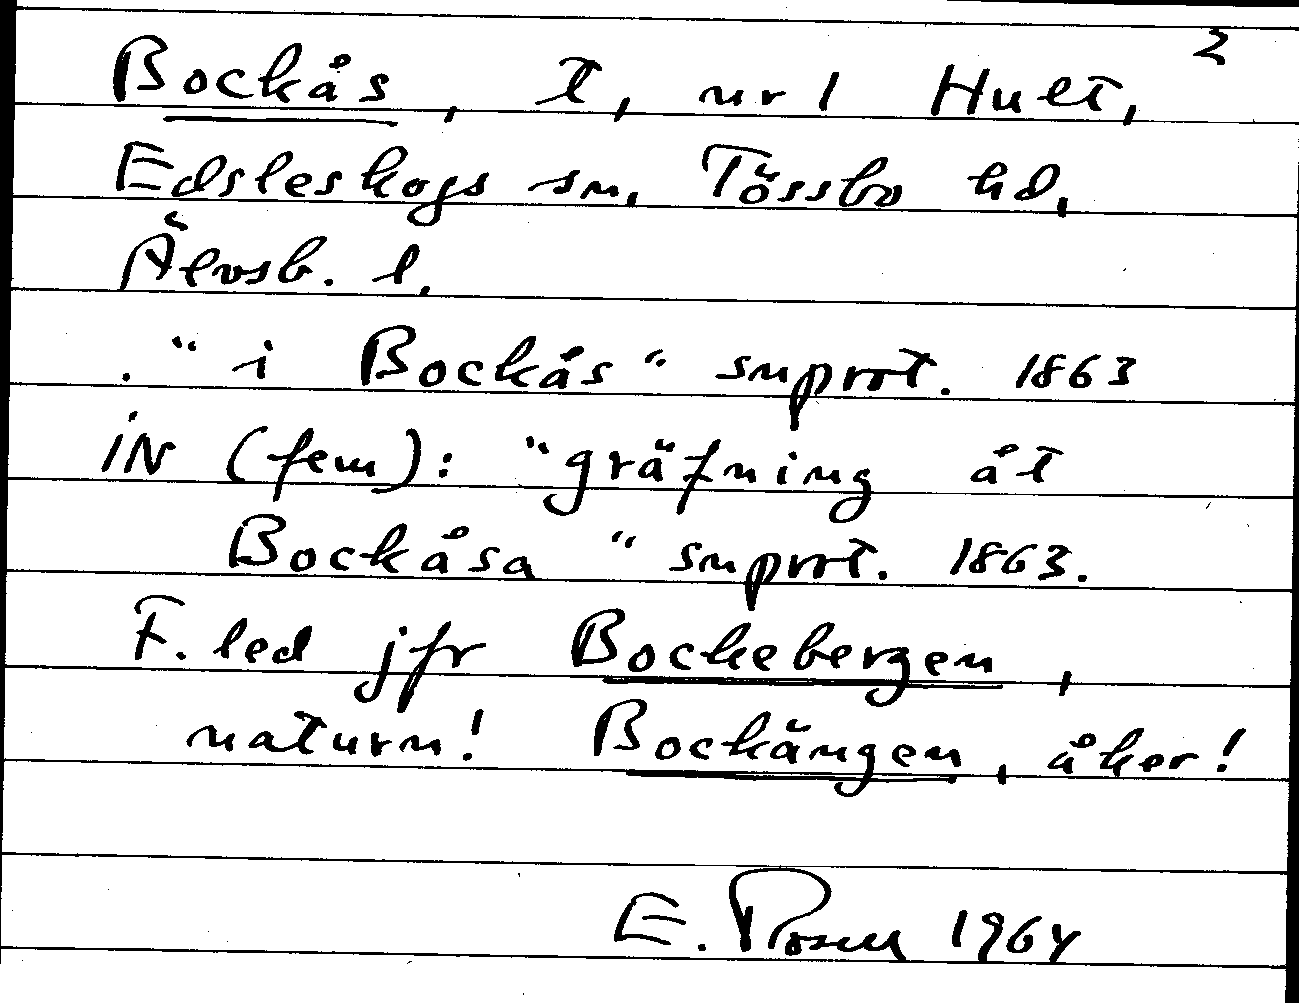 2
Bockås, t, nr 1 Hult,
Edsleskogs sn, Tössbo hd,
Älvsb. l.
. "i Bockås" smprot. 1863
iN (fem): "gräfning åt
Bockåsa" smprot. 1863.
F. led jfr Bockebergen,
naturn! Bockängen, åker!
E. 1964